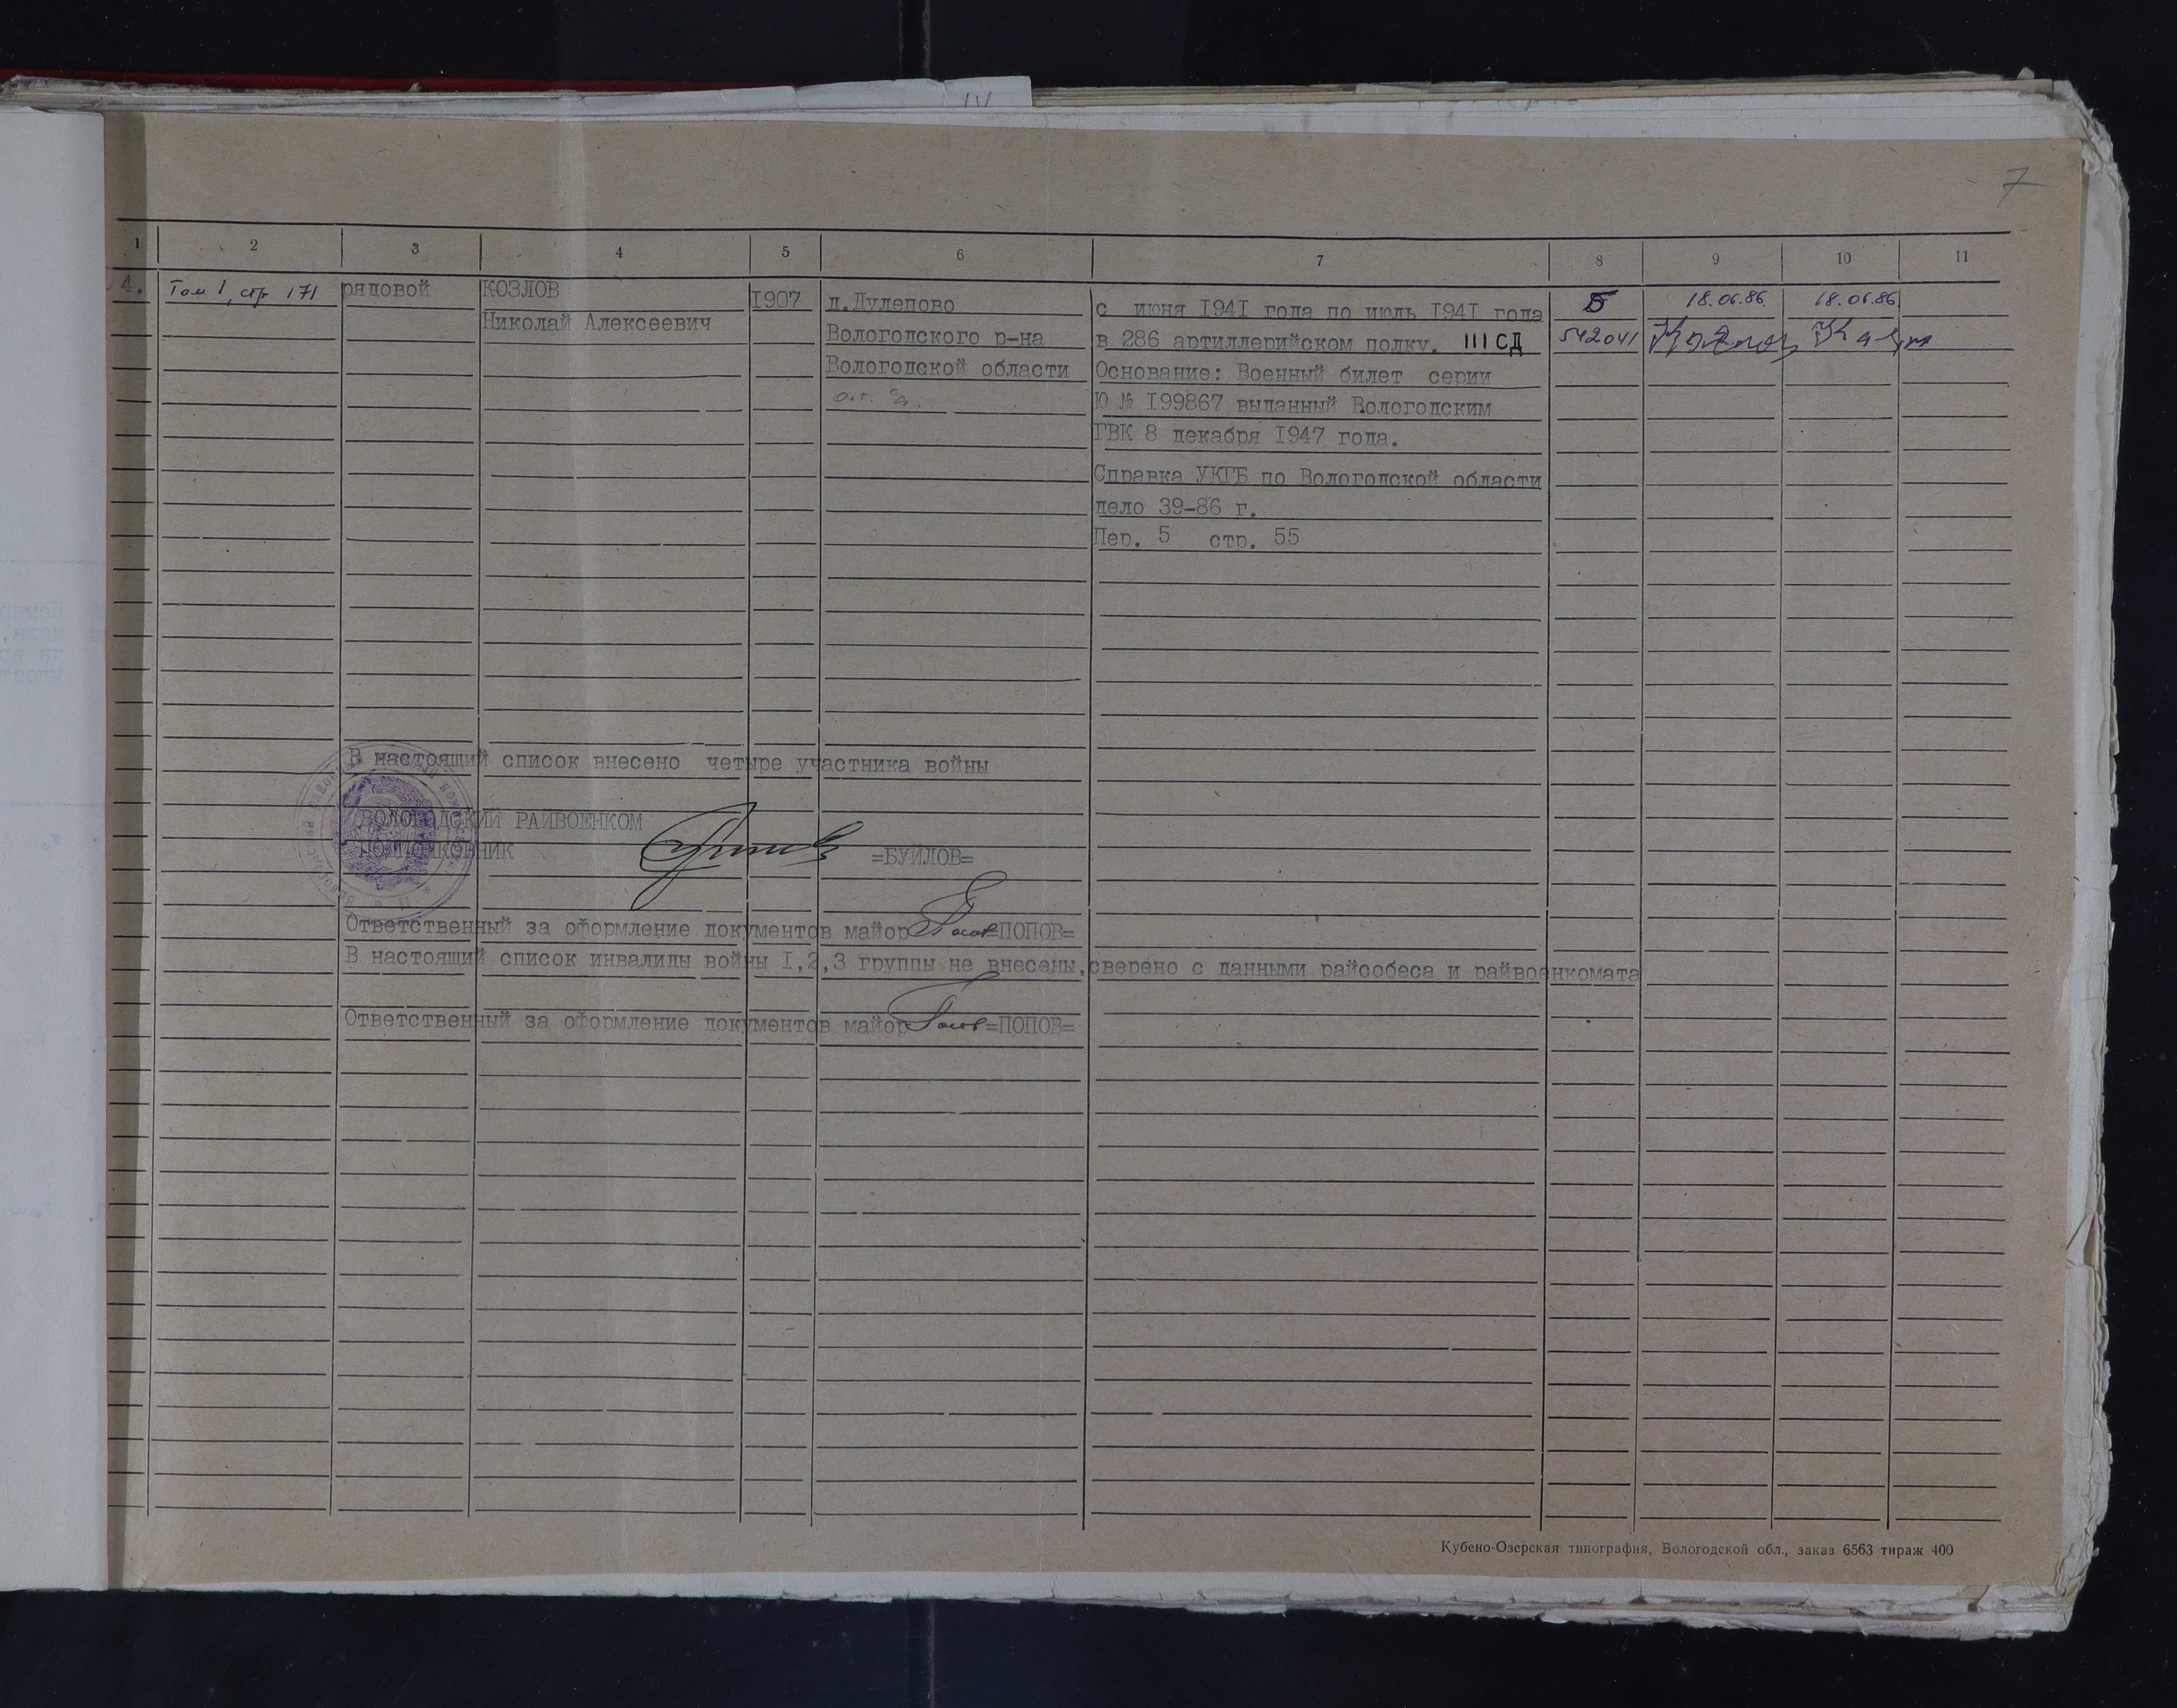 7
1 2 3 4 5 6 7 8 9 10 11
4. Том 1, стр 171 рядовой КОЗЛОВ 1907 д.Дулепово с июня 1941 года по июль 1941 года Б 18.06.86. 18.06.86
Николай Алексеевич Вологодского р-на в 286 артиллерийском полку. 111 СД 542041
Вологодской области Основание: Военный билет серии
Ю № 199867 выданный Вологодским
ГВК 8 декабря 1947 года.
Справка УКГБ по Вологодской области
дело 39-86 г.
Пер. 5 стр. 55
В настоящий список внесено четыре участника войны
ВОЛОГОДСКИЙ РАЙВОЕНКОМ
ПОДПОЛКОВНИК =БУЙЛОВ=
Ответственный за оформление документов майор =ПОПОВ=
В настоящий список инвалиды войны 1,2,3 группы не внесены,сверено с данными райсобеса и райвоенкомата
Ответственный за оформление документов майор =ПОПОВ=
Кубено-Озерская типография, Вологодской обл., заказ 6563 тираж 400